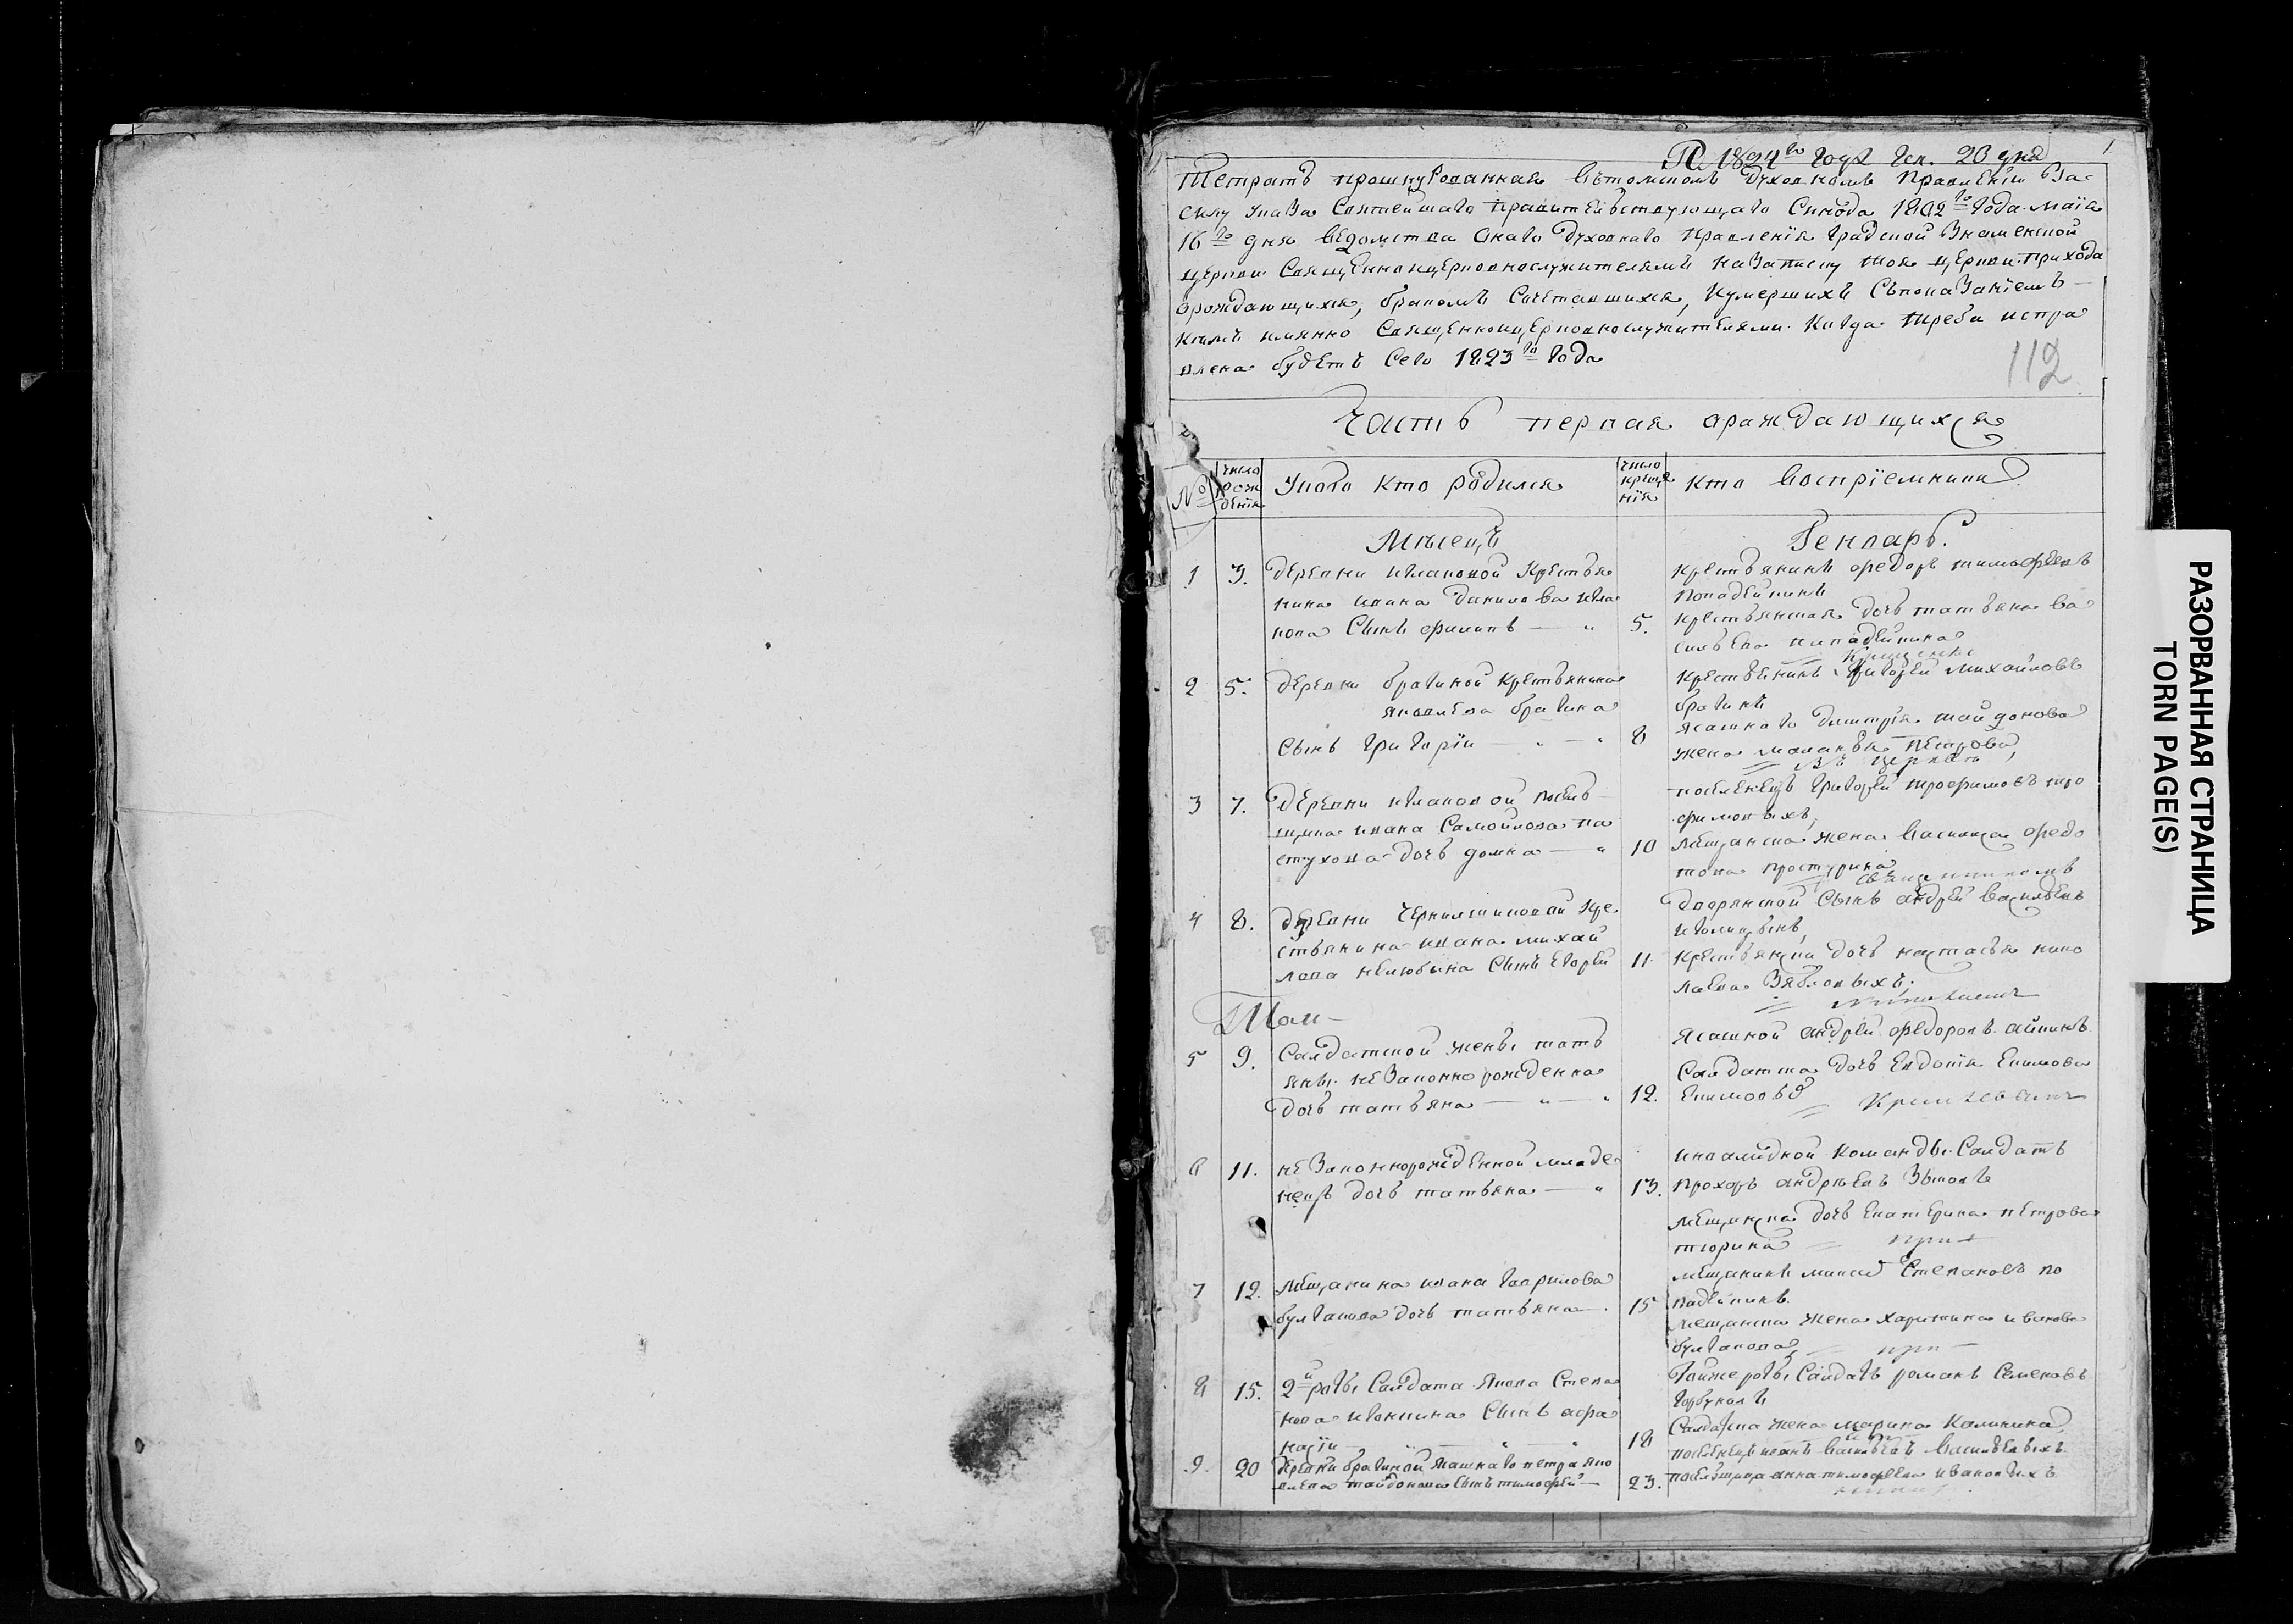 1824го года Ген. 20 дня
1
Тетрать прошнурованная вътомском Духовномъ Правлении Во
силу указа Святейшаго правительствующаго Синода 1802го года маїа
16го дня ведомства онаго Духовнаго Правленїя градской Знаменской
церкви Священноцерковнослужителямъ на записку тоя церкви прихода
ораждающихся, бракомъ Сочетавшихся, Иумершихъ Съпоказанїемъ
кемъ имянно Священноцерковнослужителями. Когда треба испра
влена будетъ Сего 1823го года
112
Часть первая ораждающихся
№
число рожденїя
Укого кто родился
число крещенїя
кто воспрїемники
Месецъ
Генварь.
1
3.
Деревни Крестья
нина ивана данилова
сынъ филипъ
5.
крестьянинъ федоръ тимофеевъ
попадейкинъ
крестьянская дочь татьяна ва
сильева попадейкина
2
5.
Деревни брагиной крестьянина
яковлева брагина
Сынъ григорїи
8
крестьянинъ григорей михайловъ
брагинъ
ясашнаго дмитрїя тайдонова
жена маланья петрова,
въ церкви
3
7.
Деревни посель
щика ивана Самойлова па
стухова дочь домна
10
поселенецъ григорей трофимовъ тро
фимовыхъ,
мещанска жена василиса федо
това
4
8.
деревни кре
стьянина ивана михай
лова нелюбина Сынъ егорей
11.
дворянской Сынъ андрей васильевъ
крестьянска дочь настасья нико
лаева Зябловыхъ.
Там
5
9.
Салдатской жены тать
яны незаконнорожденна
дочь татьяна
12.
ясашной андрей федоровъ
Салдатска дочь Евдокїя Екимова
Екимовъ
6
11.
незаконнорожденной младе
нецъ дочь татьяна
13.
инвалидной команды Салдатъ
Прохоръ андреевъ Зыковъ
мещанска дочь екатерина петрова
тюрина
7
12.
мещанина ивана гаврилова
булгакова дочь татьяна
15
мещанинъ Степановъ по
падейкинъ.
мещанска жена харитина иванова
булгакова
8
15.
2й роты Салдата якова Степа
нова Сынъ афа
насїи
18
Тойже роты Салдатъ романъ Семеновъ
горбуновъ
Салдатска жена марина Калинина
9.
20
деревни брагиной ясашнаго петра яко
влева тайдонова сынъ тимофей
23.
поселенецъ иванъ васильевъ васильевыхъ
поселщица анна тимофеева ивановыхъ
РАЗОРВАННАЯ СТРАНИЦА
TORN PAGE(S)